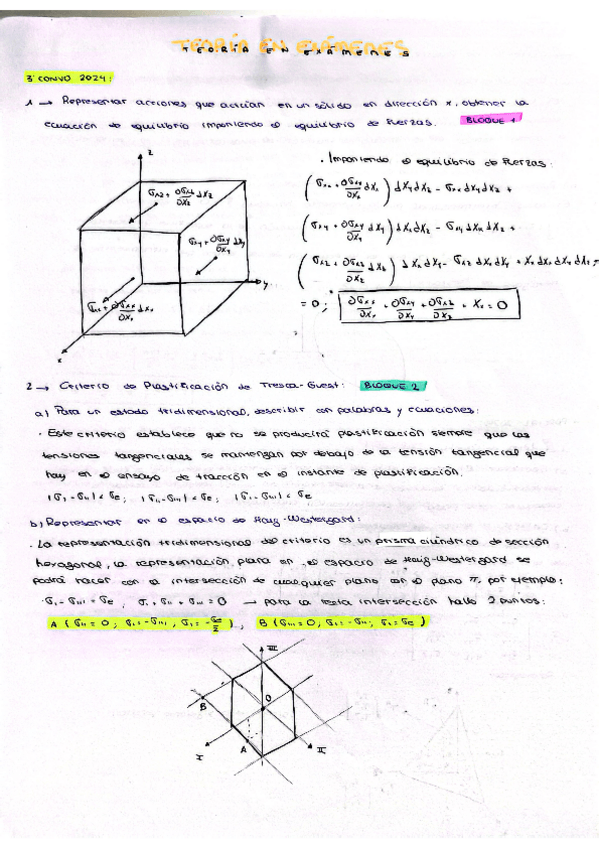 TEORÍA EN EXÁMENES
3ª CONVO 2024:
1 → Representar acciones que actúan en un sólido en dirección x, obtener la
ecuación de equilibrio imponiendo el equilibrio de fuerzas. BLOQUE 1
z
· Imponiendo el equilibrio de fuerzas:
y
= 0 ;
x
2 → Criterio de Plastificación de Tresca-Guest: BLOQUE 2
a) Para un estado tridimensional, describir con palabras y ecuaciones:
· Este criterio establece que no se producirá plastificación siempre que las
tensiones tangenciales se mantengan por debajo de la tensión tangencial que
hay en el ensayo de tracción en el instante de plastificación.
|σI - σII| < σe ; |σII - σIII| < σe ; |σI - σIII| < σe
b) Representar en el espacio de Haig-Westergard:
· La representación tridimensional del criterio es un prisma cilíndrico de sección
hexagonal, la representación plana en el espacio de Haig-Westergard se
podrá hacer con la intersección de cualquier plano con el plano π, por ejemplo:
σI - σIII = σe ; σI + σII + σIII = 0 → para la recta intersección hallo 2 puntos:
III
B
O
A
I
II